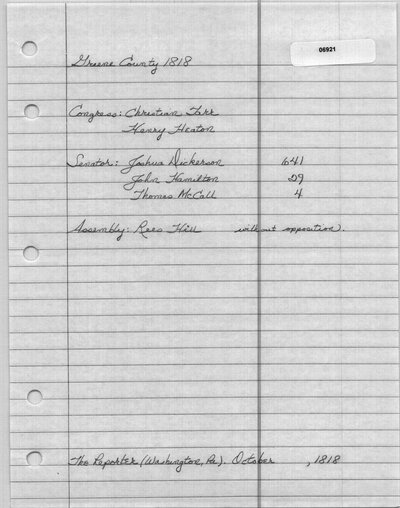 06921
Greene County 1818
Congress: Christian Tarr
Henry Heaton
Senator: Joshua Dickerson 641
John Hamilton 29
Thomas McCall 4
Assembly: Rees Hill without opposition).
The Reporter (Washington, Pa). October , 1818